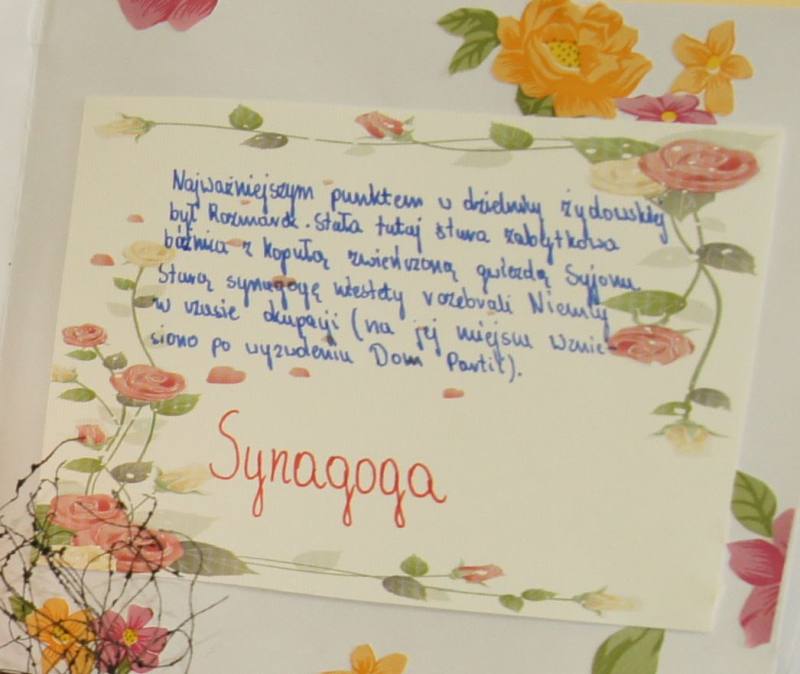 Najważniejszym punktem w dzielnicy żydowskiej
był Rozmarek. Stała tutaj stara zabytkowa
bóżnica z kopułą zwieńczoną gwiazdą Syjonu.
Starą synagogę niestety rozebrali Niemcy
w czasie okupacji (na jej miejscu wznie-
siono po wyzwoleniu Dom Partii).
Synagoga